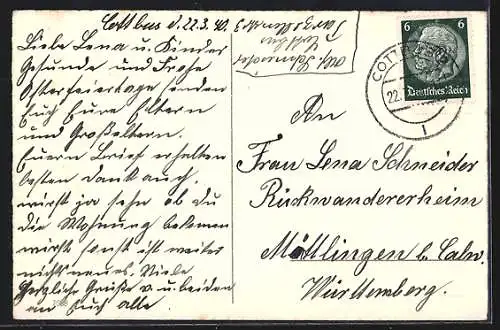 Cottbus d. 22.3.40.
Liebe Lena u. Kinder
Gesunde und Frohe
Osterfeiertage senden
Euch Eure Eltern
und Großeltern.
Euern Brief erhalten
besten Dank auch,
wirst ja sehn ob du
die Wohnung bekomen
wirst sonst ist weiter
nichts neues. Viele
Herzliche Grüße v. u. beiden
an Euch alle
Abs. Schneider
Cottbus
6 6
Deutsches Reich
COTTBUS
22.
1
An
Frau Lena Schneider
Rückwandererheim
Möttlingen b. Calw.
Württemberg.